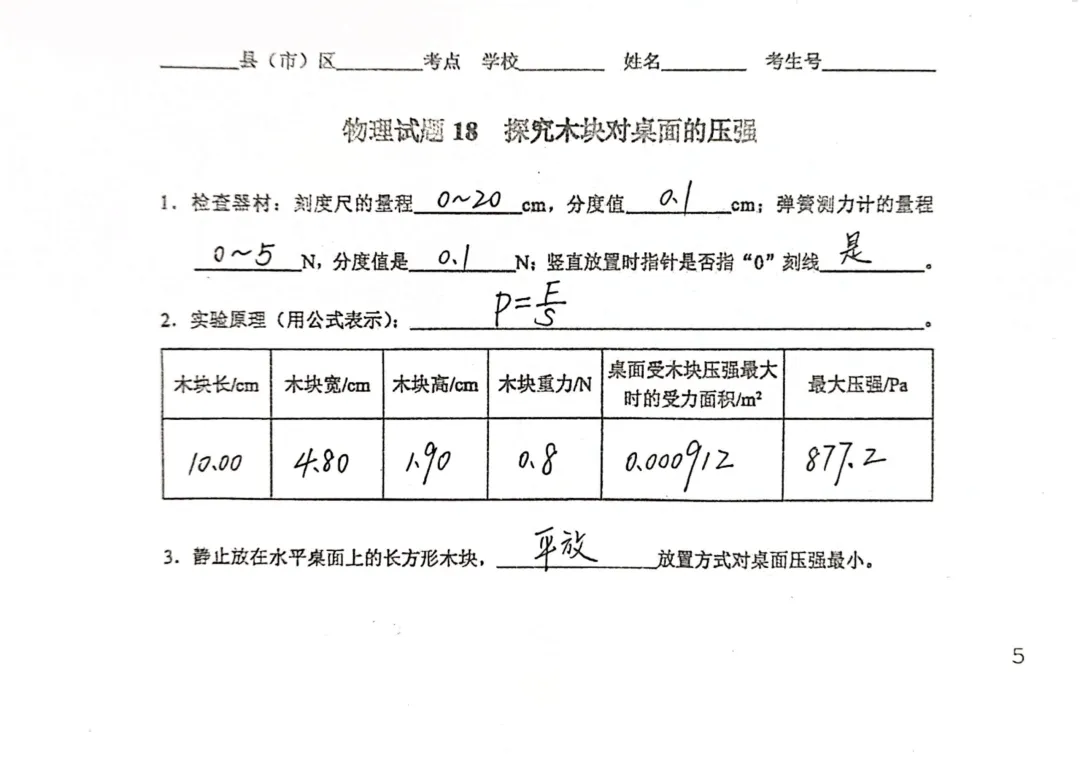 ________县（市）区________考点 学校________ 姓名________ 考生号________
物理试题18 探究木块对桌面的压强
1. 检查器材：刻度尺的量程 0~20 cm，分度值 0.1 cm；弹簧测力计的量程
0~5 N，分度值是 0.1 N；竖直放置时指针是否指“0”刻线 是 。
2. 实验原理（用公式表示）： P=F/S 。
木块长/cm 木块宽/cm 木块高/cm 木块重力/N 桌面受木块压强最大时的受力面积/m² 最大压强/Pa
10.00 4.80 1.90 0.8 0.000912 877.2
3. 静止放在水平桌面上的长方形木块， 平放 放置方式对桌面压强最小。
5